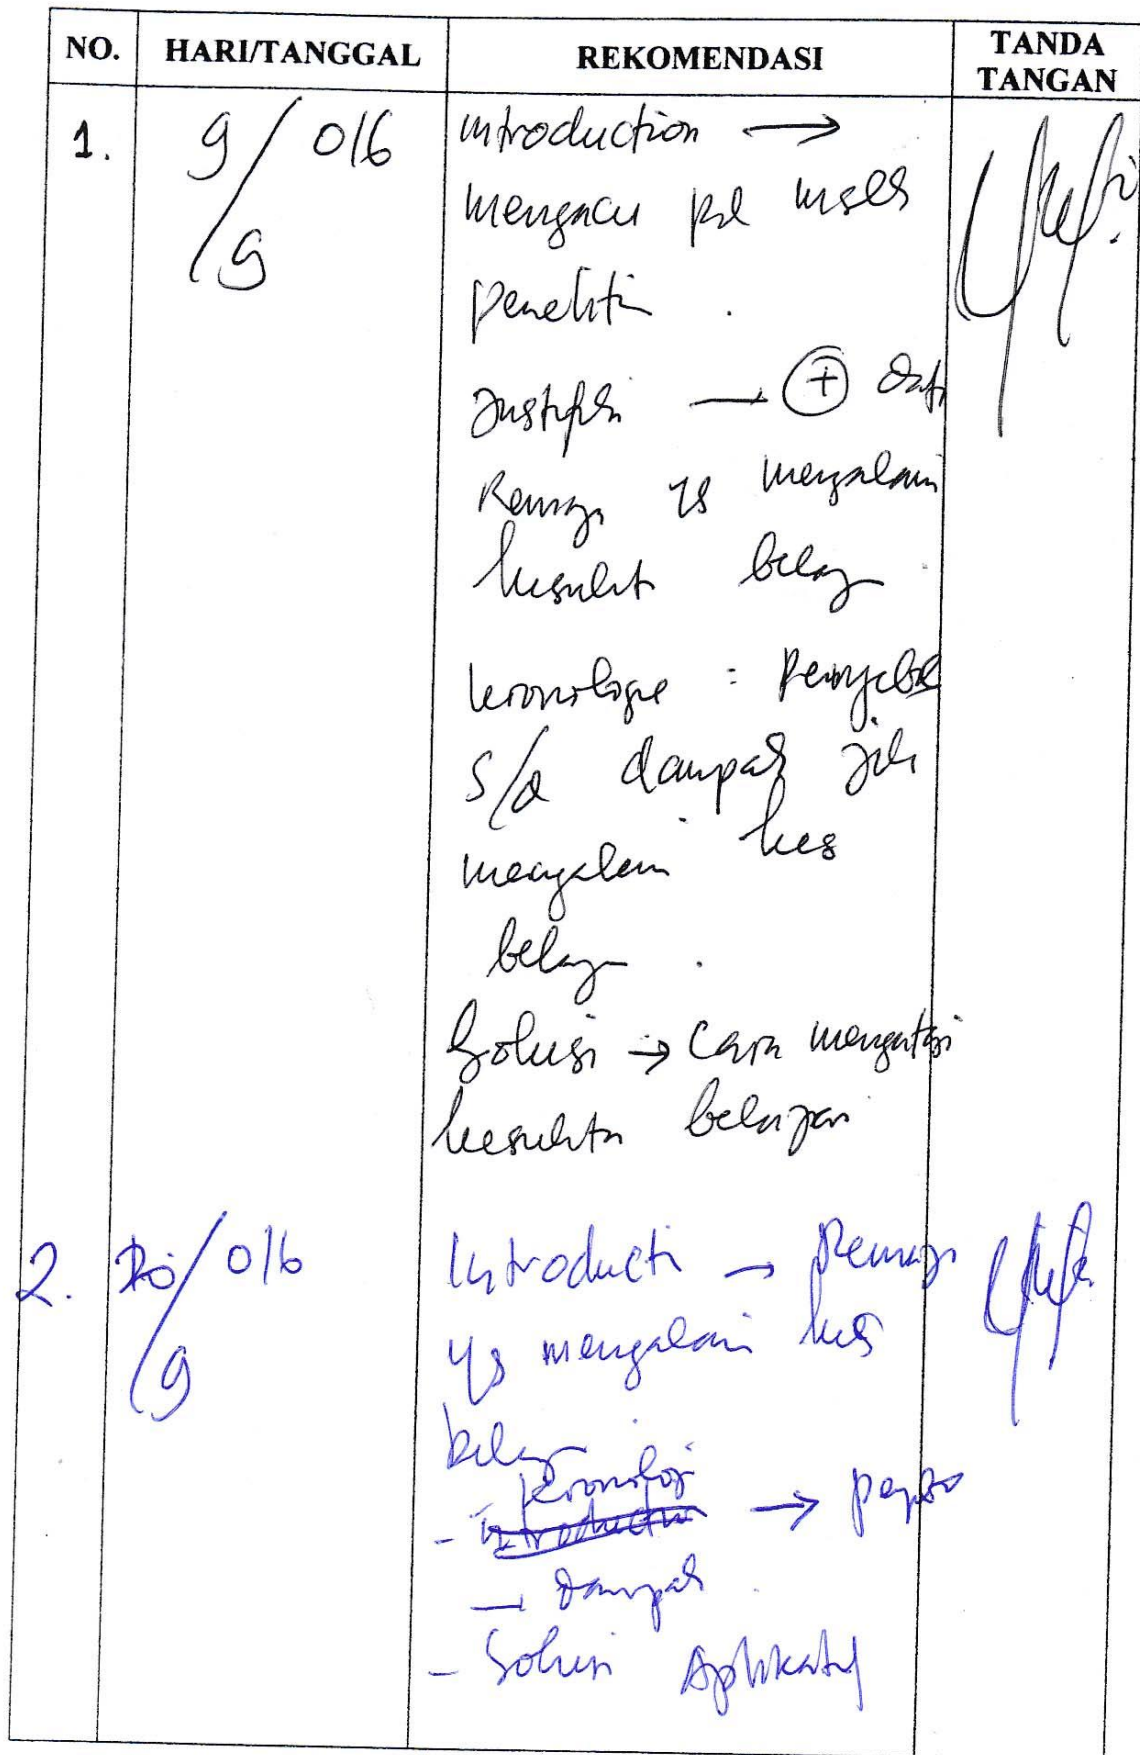 NO. HARI/TANGGAL REKOMENDASI TANDA TANGAN
1. 9/9 016 introduction →
mengacu pd
penelitin .
Justifksi → + data
Remaja yg mengalami
kesulit belaj
kronologi : Penyebab
s/d dampak jik
mengalami kes
belaj .
Solusi → Cara mengatasi
kesulitn belajar
2. /9 016 Introducti → Remaja
yg mengalami kes
belaj
- kronologi →
→ Dampak .
- Solusi Aplikatif